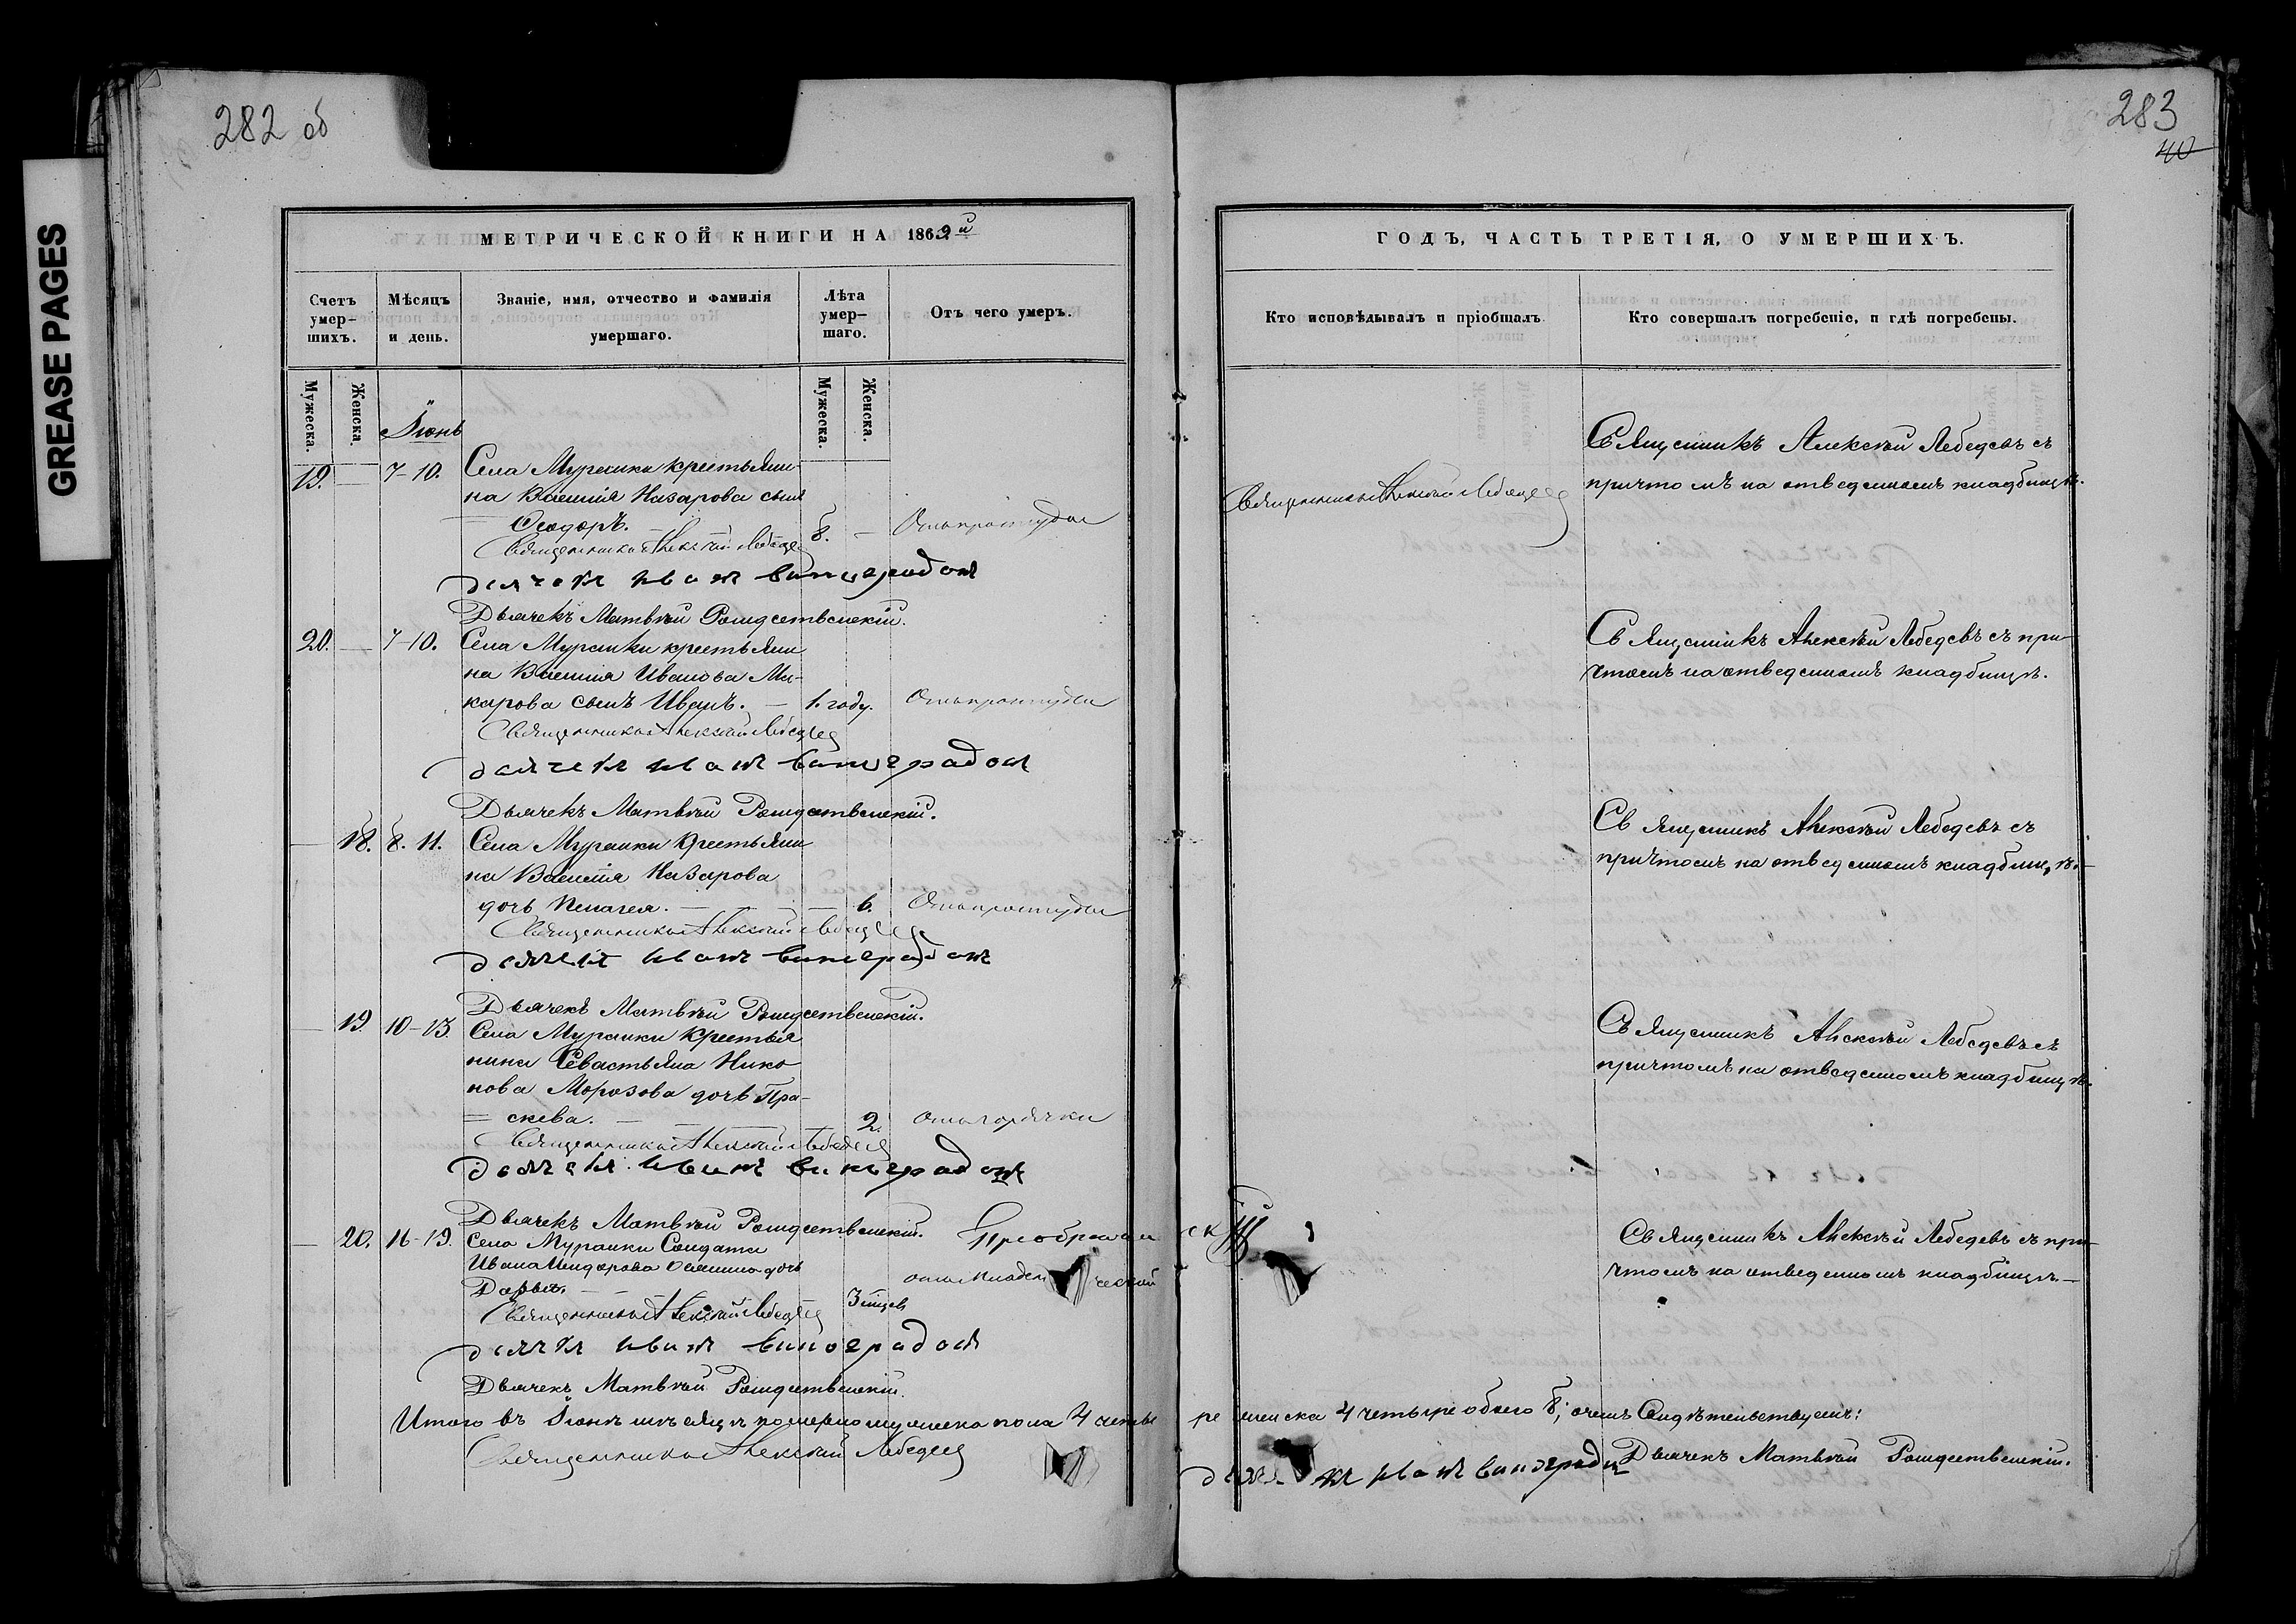 GREASE PAGES
282 об
МЕТРИЧЕСКОЙ КНИГИ НА 1869й
Счетъ умер-
шихъ.
Мѣсяцъ
и день.
Званіе, имя, отчество и фамилія
умершаго.
Лѣта
умер-
шаго.
Отъ чего умеръ.
Мужеска.
Женска.
Мужеска.
Женска.
Іюнь
19. — 7-10. Села Мурашки крестьяни-
на Василія Назарова сынъ
Ѳеодоръ. — 8. — Отъ простуды
Священникъ Алексѣй Лебедев
дьячекъ иванъ виноградовъ
Дьячекъ Матвѣй Рождественскій.
20. — 7-10. Села Мурашки крестьяни
на Василія Иванова Ма-
карова сынъ Иванъ. — 1. году. Отъ простуды
Священникъ Алексѣй Лебедев
дьячекъ иванъ виноградовъ
Дьячекъ Матвѣй Рождественскій.
— 18. 8. 11. Села Мурашки крестьяни
на Василія Назарова
дочь Пелагея. — 6. Отъ простуды
Священникъ Алексѣй Лебедев
дьячекъ иванъ виноградовъ
Дьячекъ Матвѣй Рождественскій.
— 19. 10-13. Села Мурашки крестья
нина Севастьяна Нико
нова Морозова дочь Пра-
скева. — 2. отъ горячки
Священникъ Алексѣй Лебедев
дьячекъ иванъ виноградовъ
Дьячекъ Матвѣй Рождественскій.
— 20. 16-19. Села Мурашки Солдата
Ивана дочь
Дарья. — 3 отъ младенческой
Священникъ Алексѣй Лебедев
дьячекъ иванъ виноградовъ
Дьячекъ Матвѣй Рождественскій.
Итого въ Іюнѣ мѣсяцѣ померло мужеска пола 4 четы
Священникъ Алексѣй Лебедев
283
40
ГОДЪ, ЧАСТЬ ТРЕТІЯ, О УМЕРШИХЪ.
Кто исповѣдывалъ и пріобщалъ.
Кто совершалъ погребеніе, и гдѣ погребены.
Священникъ Алексѣй Лебедев
Священникъ Алексѣй Лебедевъ съ
причтомъ на отведенномъ кладбищѣ.
Священникъ Алексѣй Лебедевъ съ при-
чтомъ на отведенномъ кладбищѣ.
Священникъ Алексѣй Лебедевъ съ
причтомъ на отведенномъ кладбищѣ.
Священникъ Алексѣй Лебедевъ съ
причтомъ на отведенномъ кладбищѣ.
Священникъ Алексѣй Лебедевъ съ при-
чтомъ на отведенномъ кладбищѣ.
ре женска 4 четыре обоего 8; о чемъ Свидѣтельствуемъ:
дьячекъ иванъ виноградовъ
Дьячекъ Матвѣй Рождественскій.